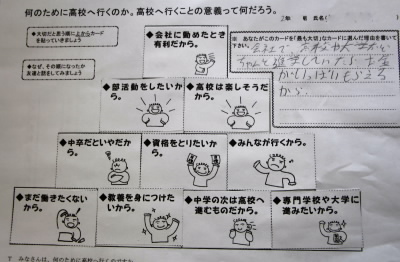 何のために高校へ行くのか。高校へ行くことの意義って何だろう。
2年
氏名(
◆大切だと思う順に上からカード
を貼っていきましょう
◆なぜ、その順になったか
友達と話をしてみましょう
◆会社に勤めたとき
有利だから。
※ あなたがこのカードを「最も大切」なカードに選んだ理由を書いて
下さい。
会社で
ちゃんと
から。
◆部活動をしたいか
ら。
◆高校は楽しそうだ
から。
◆中卒だといやだか
ら。
◆資格をとりたいか
ら。
◆みんなが行くから。
◆まだ働きたくない
から。
◆教養を身につけた
いから。
◆中学の次は高校へ
進むものだから。
◆専門学校や大学に
進みたいから。
みなさんは、何のために高校へ行くのですか